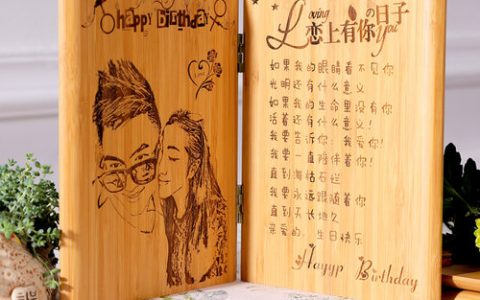 happy Birthday
Loving
恋上有你の日子
You
如果我的眼睛看不见你
光明还有什么意义
如果我的生命里没有你
活着还有什么意义!
我要告诉你:我爱你!
我要一直陪伴着你!
直到海枯石烂
我要永远跟随着你
直到天长地久
亲爱的,生日快乐
Hayyp Birthday